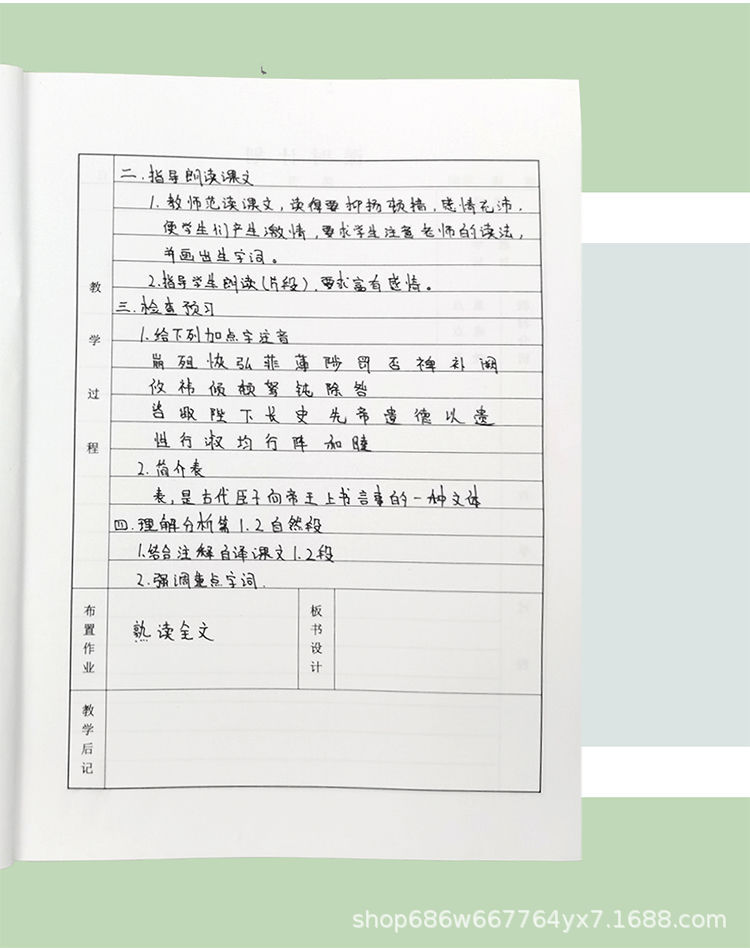 二.指导朗读课文
1.教师范读课文,读得要抑扬顿挫,感情充沛.
使学生们产生激情,要求学生注意老师的读法,
并画出生字词。
2.指导学生朗读(片段),要求富有感情。
三.检查预习
1.给下列加点字注音
崩 殂 恢 弘 菲 薄 陟 罚 否 裨 补 阙
攸 祎 倾 颓 驽 钝 除 咎
诹 陛 下 长 史 先 帝 遗 德 以 遗
性 行 淑 均 行 阵 和 睦
2.简介表
表,是古代臣子向帝王上书言事的一种文体
四.理解分析第1.2自然段
1.结合注解自译课文1.2段
2.强调重点字词.
教学过程
布置作业
熟读全文
板书设计
教学后记
shop686w667764yx7.1688.com